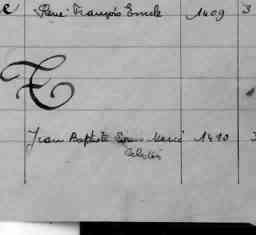 e René François Emile 1409 3
T
Jean Baptiste Marie 1410 3
Célestin